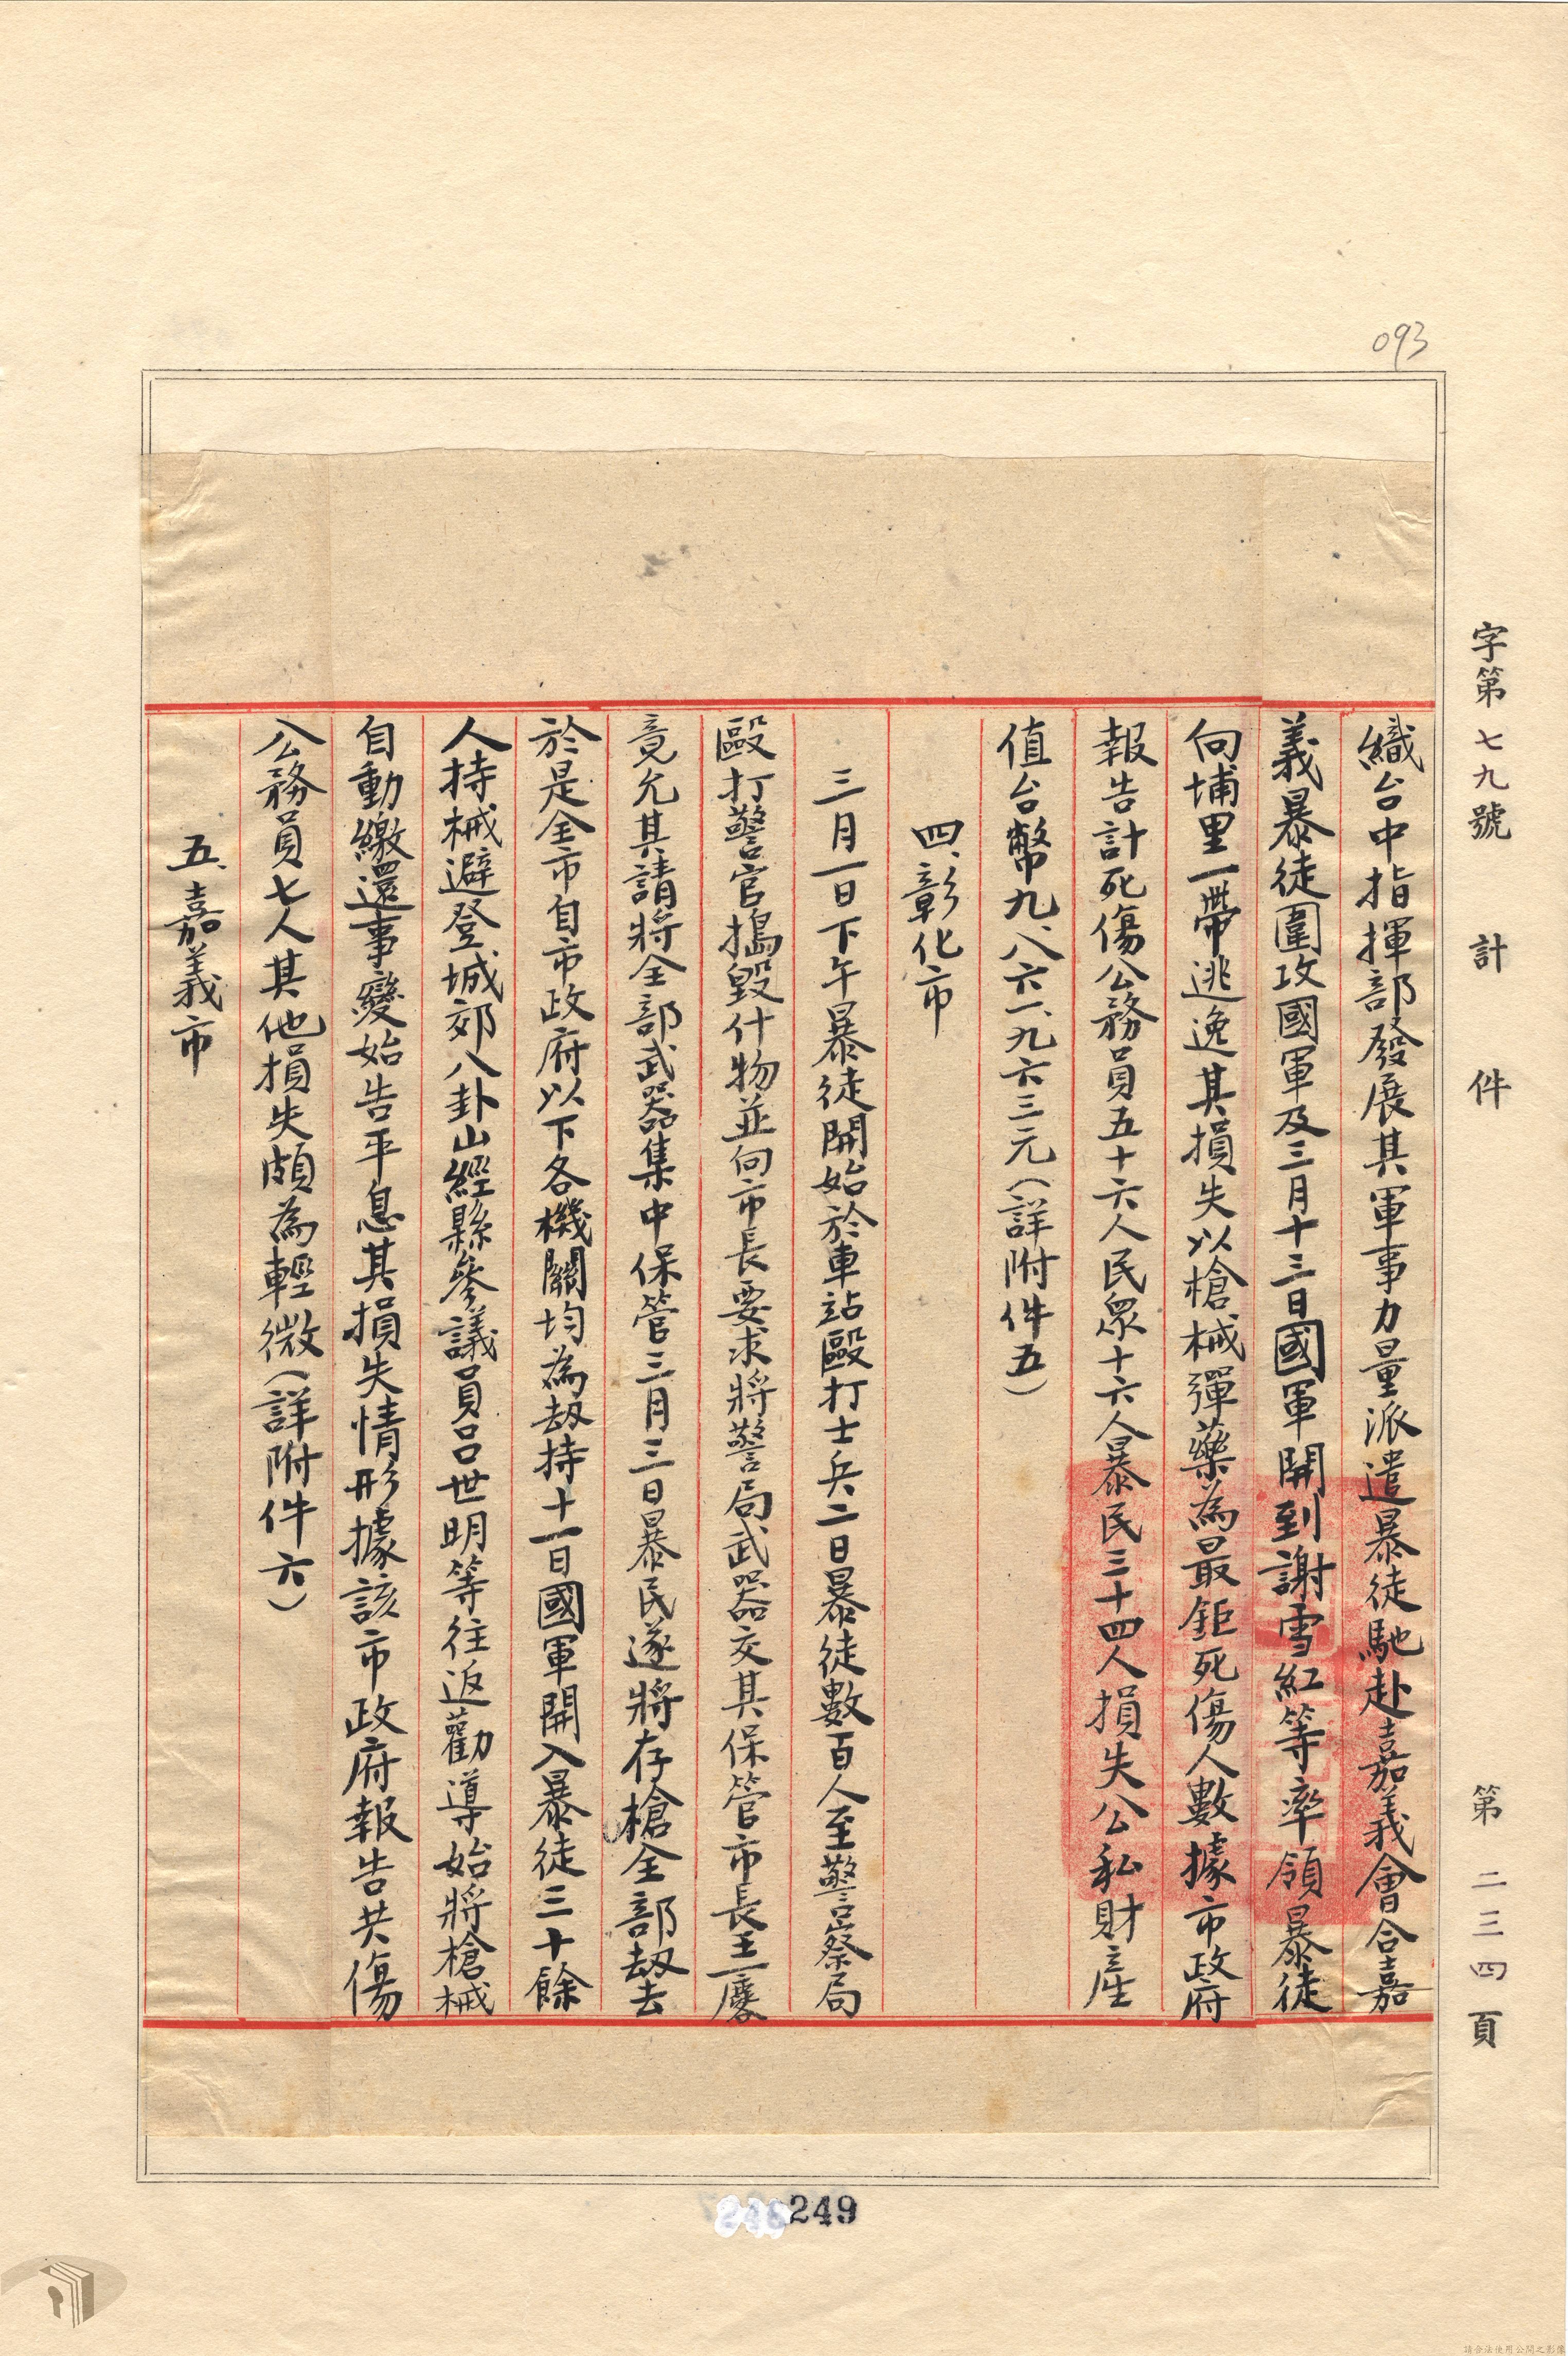 093
字第七九號 計 件 第二三四頁
織台中指揮部發展其軍事力量派遣暴徒馳赴嘉義會合嘉
義暴徒圍攻國軍及三月十三日國軍開到謝雪紅等率領暴徒
向埔里一帶逃逸其損失以槍械彈藥為最鉅死傷人數據市政府
報告計死傷公務員五十六人民眾十六人暴民三十四人損失公私財產
值台幣九、八六一、九六三元(詳附件五)
四、彰化市
三月一日下午暴徒開始於車站毆打士兵二日暴徒數百人至警察局
毆打警官搗毀什物並向市長要求將警局武器交其保管市長王一麐
竟允其請將全部武器集中保管三月三日暴民遂將存槍全部刼去
於是全市自市政府以下各機關均為刼持十一日國軍開入暴徒三十餘
人持械避登城郊八卦山經縣參議員呂世明等往返勸導始將槍械
自動繳還事變始告平息其損失情形據該市政府報告共傷
公務員七人其他損失頗為輕微(詳附件六)
五、嘉義市
249
請合法使用公開之影像